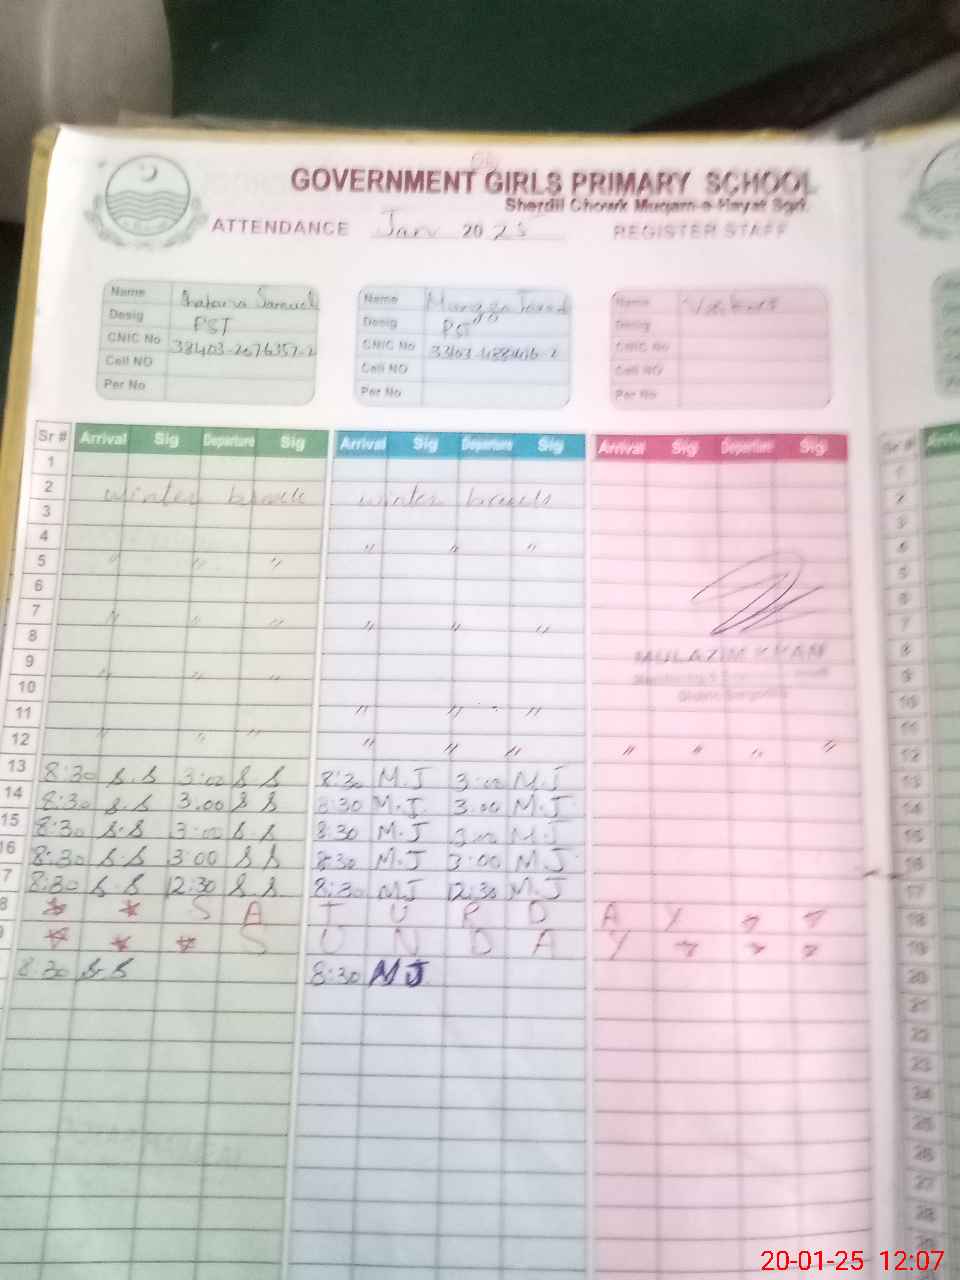 GOVERNMENT GIRLS PRIMARY SCHOOL
Sherdil Chowk Muqam-e-Hayat Sgd.
ATTENDANCE Jan 2025 REGISTER STAFF
Name Samuel Name Name
Desig PST Desig PST Desig
CNIC No CNIC No CNIC No
Cell NO Cell NO Cell NO
Per No Per No Per No
Sr # Arrival Sig Departure Sig Arrival Sig Departure Sig Arrival Sig Departure Sig Sr #
1 1
2 winter break winter break 2
3 3
4 " " " 4
5 " " " 5
6 6
7 " " " " " " 7
8 MULAZIM KHAN 8
9 " " " 9
10 10
11 " " " 11
12 " " " " " " " " " " 12
13 8:30 S.S 3:00 S S 8:30 M.J 3:00 M.J 13
14 8:30 S.S 3.00 S S 8:30 M.J 3.00 M.J 14
15 8:30 S.S 3:00 S S 8:30 M.J 3:00 M.J 15
16 8:30 S.S 3:00 S S 8:30 M.J 3:00 M.J 16
7 8:30 S.S 12:30 S S 8:30 MJ 12:30 M.J 17
8 S A T U R D A Y 18
9 S U N D A Y 19
8:30 S.S 8:30 MJ 20
21
22
23
24
25
26
27
28
29
20-01-25 12:07